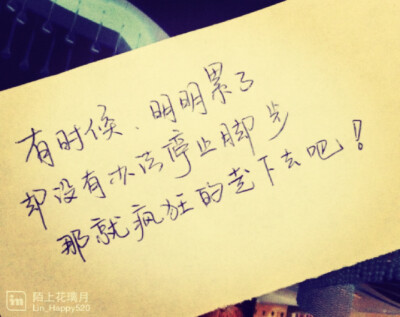 有时候、明明累了
却没有办法停止脚步
那就疯狂的走下去吧！
in 陌上花隅月
Lin_Happy520